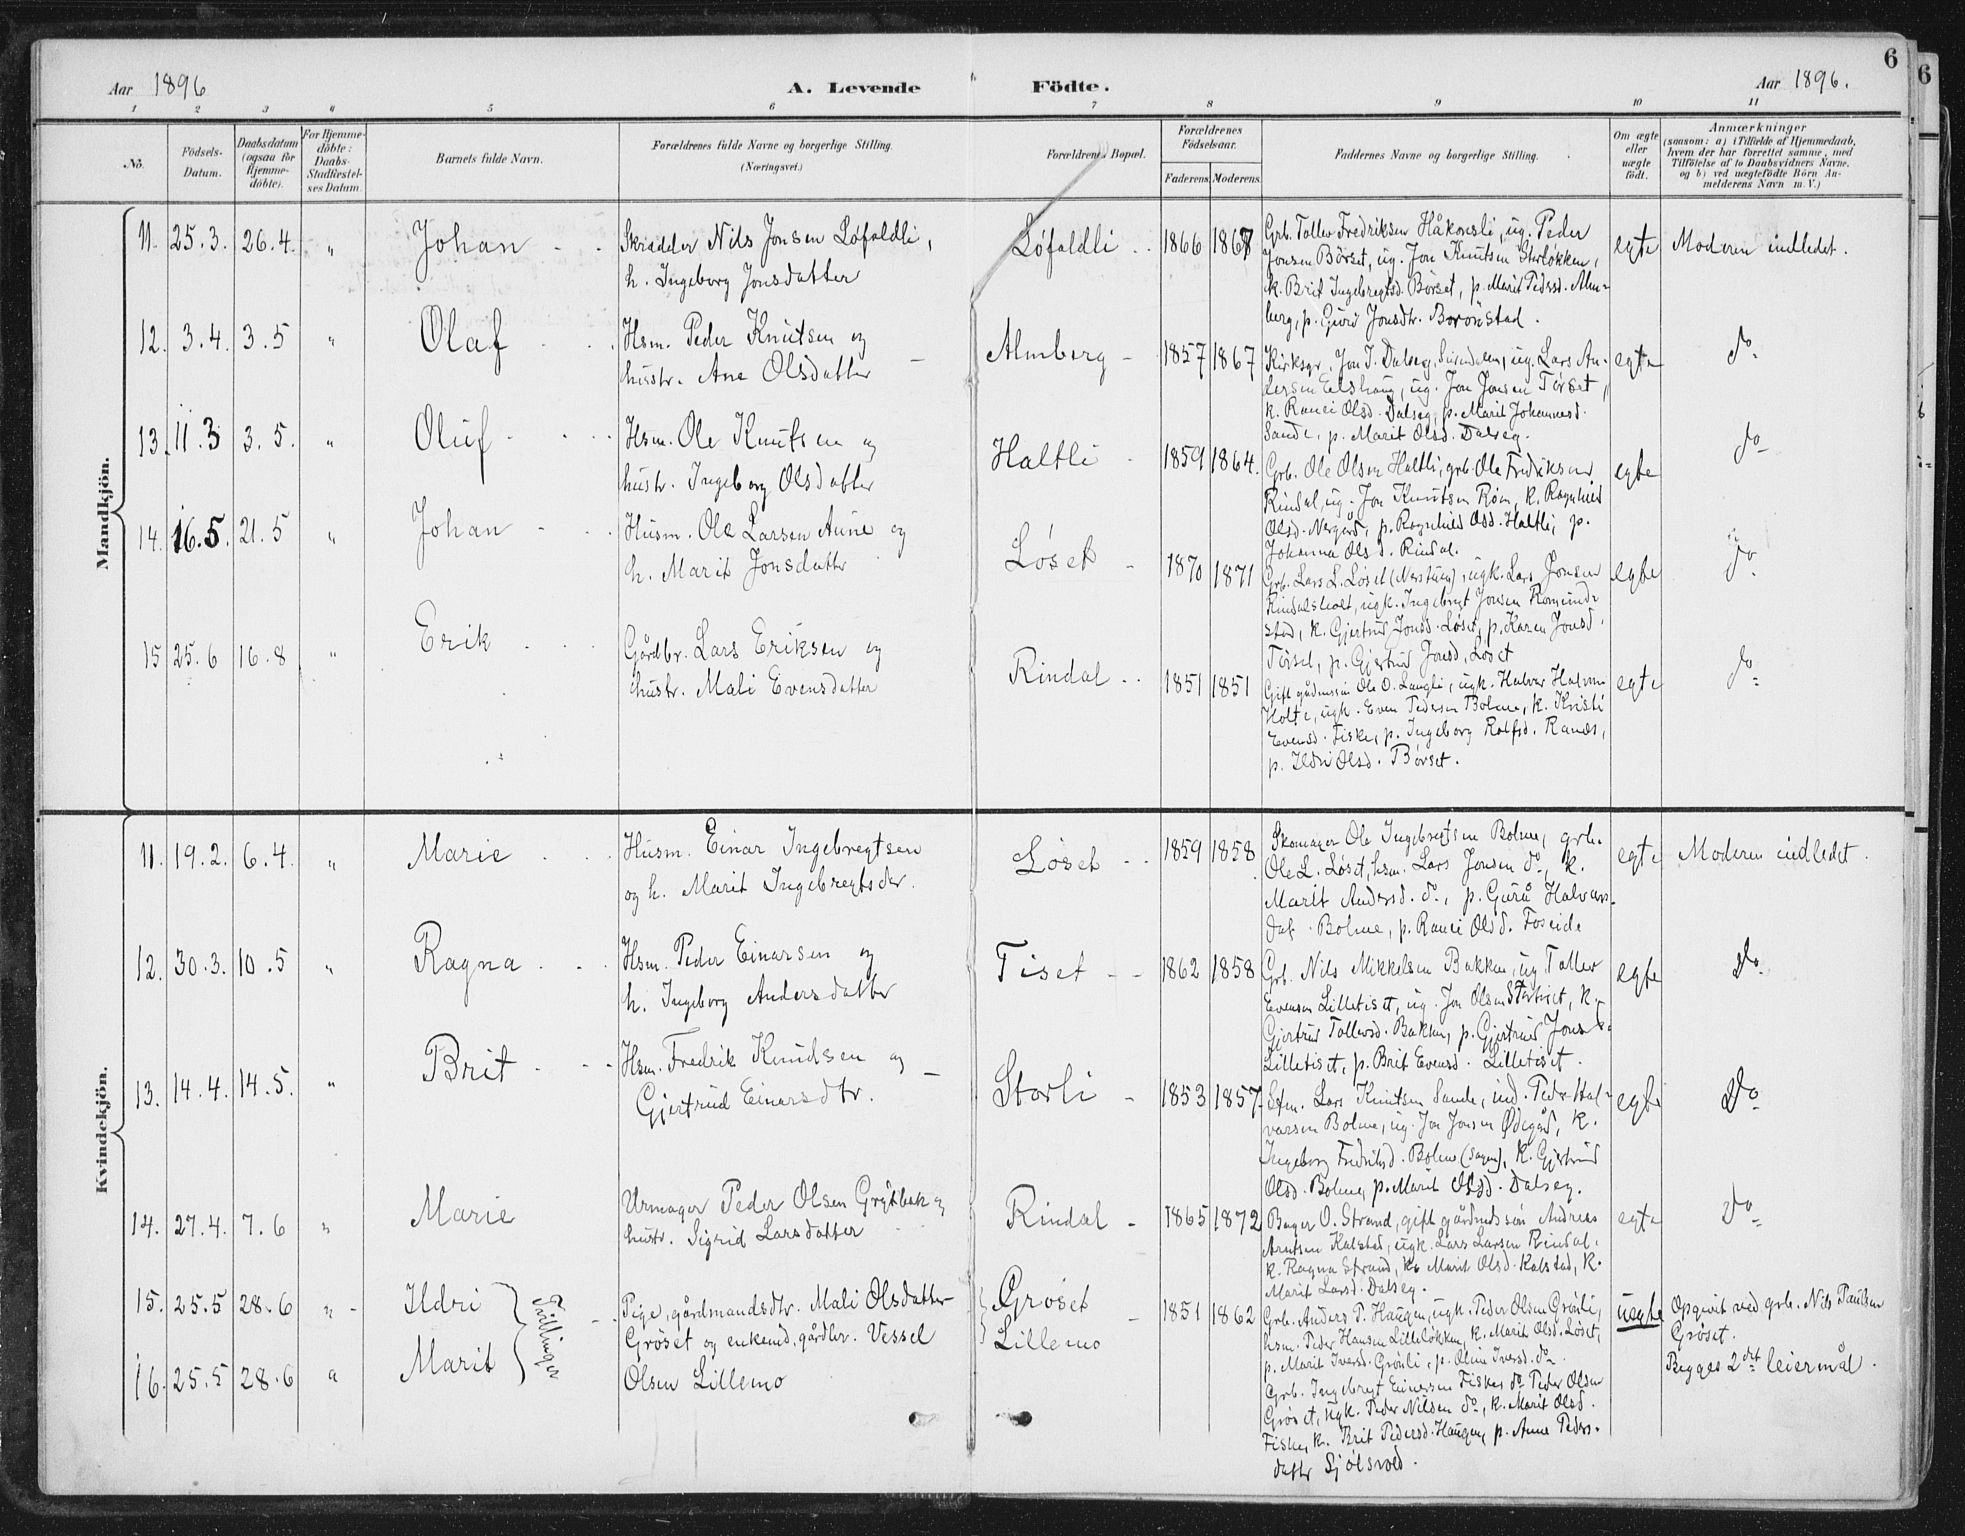 6
6
Aar 1896
A. Levende Födte.
Aar 1896.
1 2 3 4 5 6 7 8 9 10 11
No.
Födsels-Datum.
Daabsdatum (ogsaa for Hjemme-döbte).
For Hjemme-döbte: Daabs-Stadfæstel-ses Datum.
Barnets fulde Navn.
Forældrenes fulde Navne og borgerlige Stilling. (Næringsvei.)
Forældrenes Bopæl.
Forældrenes Födselsaar.
Faderens. Moderens.
Faddernes Navne og borgerlige Stilling.
Om ægte eller uægte födt.
Anmærkninger
(saasom: a) i Tilfælde af Hjemmedaab,
hvem der har forrettet samme, med
Tilföielse af to Daabsvidners Navne,
og b) ved uægtefödte Börn An-
melderens Navn m. V.)
Mandkjön.
11. 25.3. 26.4. " Johan
Skrædder Nils Jonsen Løfaldli,
h. Ingeborg Jonsdatter
Løfaldli 1866 1867
Grb. Tollev Fredriksen Håkonsli, ug. Peder
Jonsen Börset, ug. Jon Knutsen Storløkken,
k. Brit Ingebregtsd. Börset, p. Marit Pedersd. Alm-
berg, p. Guri Jonsdtr. Baronstad.
egte Moderen indledet.
12. 3.4. 3.5 " Olaf
Hsm. Peder Knutsen og
hustr. Ane Olsdatter
Almberg 1857 1867
Kirksgr. Jon J. Dalseg, Surendalen, ug. Lars An-
dersen Elshaug, ug. Jon Jonsen Tørset,
k. Ranei Olsd. Dalseg, p. Marit Johannesd.
Sande, p. Marit Olsd. Dalseg.
egte do
13. 11.3 3.5. " Oluf
Hsm. Ole Knutsen og
hustr. Ingeborg Olsdatter
Haltli 1859 1864.
Grb. Ole Olsen Haltli, grb. Ole Fredriksen
Rindal, ug. Jon Knutsen Röen, k. Ragnhild
Olsd. Nergård, p. Ragnhild Olsd. Haltli, p.
Johanna Olsd. Rindal.
egte do
14. 16.5. 21.5 " Johan
Husm. Ole Larsen Aune og
h. Marit Jonsdatter
Løset 1870 1871
Grb. Lars L. Løset (Nerstuen), ugk. Lars Jonsen
Rindalsholt, ugk. Ingebregt Jonsen Romund-
stad, k. Gjertrud Jonsd. Løset, p. Karen Jonsd.
Tørset, p. Gjertrud Jonsd. Løset
egte do
15 25.6 16.8 " Erik
Gårdbr. Lars Eriksen og
hustr. Mali Evensdatter
Rindal 1851 1851
Gift gårdmssøn Ole O. Langli, ugk. Halvor Halvorsen
Holte, ugk. Even Pedersen Bolme, k. Kristi
Evensd. Fiske, p. Ingeborg Rolfsd. Ranes,
p. Ildri Olsd. Börset.
egte do
Kvindekjön.
11. 19.2. 6.4. " Marie
Husm. Einar Ingebregtsen
og h. Marit Ingebregtsdtr.
Løset 1859 1858
Skomager Ole Ingebregtsen Bolme, grb.
Ole L. Løset, hsm. Lars Jonsen do, k.
Marit Andersd. do, p. Guru Halvors-
dat. Bolme, p. Ranei Olsd. Foseide
egte Moderen indledet.
12. 30.3. 10.5 " Ragna
Hsm. Peder Einarsen og
h. Ingeborg Andersdatter
Tiset 1862 1858
Grb. Nils Mikkelsen Bakken, ug. Tollev
Evensen Lilletiset, ug. Jon Olsen Stortiset, k.
Gjertrud Tollevsd. Bakken, p. Gjertrud Jonsd.
Lilletiset, p. Brit Evensd. Lilletiset.
egte do
13. 14.4. 14.5. " Brit
Hsm. Fredrik Knudsen og
Gjertrud Einarsdtr.
Storli 1853 1857
Stm. Lars Knutsen Sande, ind. Peder Hal-
varsen Bolme, ug. Jon Jonsen Ødegård, k.
Ingeborg Fredriksd. Bolme (Sagen), k. Gjertrud
Olsd. Bolme, p. Marit Olsd. Dalseg.
egte do
14. 27.4. 7.6 " Marie
Urmager Peder Olsen Grytbak og
hustr. Sigrid Larsdatter
Rindal 1865 1872
Bager O. Strand, gift gårdmdssøn Andreas
Arntsen Kalstad, ugk. Lars Larsen Rindal,
k. Ragna Strand, k. Marit Olsd. Kalstad, k.
Marit Larsd. Dalseg.
egte do
15. 25.5 28.6 " Ildri
16. 25.5 28.6 " Marit
Tvillinger
Pige, gårdmandsdtr. Mali Olsdatter
Grøset og enkemd. gårdbr. Vessel
Olsen Lillemo
Grøset
Lillemo
1851 1862
Grb. Anders P. Haugen, ugk. Peder Olsen Grönli,
hsm. Peder Hansen Lilleløkken, k. Marit Olsd. Løset,
p. Marit Iversd. Grönli, p. Oline Iversd. do.
Grb. Ingebregt Einersen Fiske, do Peder Olsen
Grøset, ugk. Peder Nilsen do, k. Marit Olsd.
Fiske, k. Brit Pedersd. Haugen, p. Anne Peders-
datter Sjølsvold.
uegte
Opgivet ved grb. Nils Paulsen
Grøset.
Begges 2det leiermål.